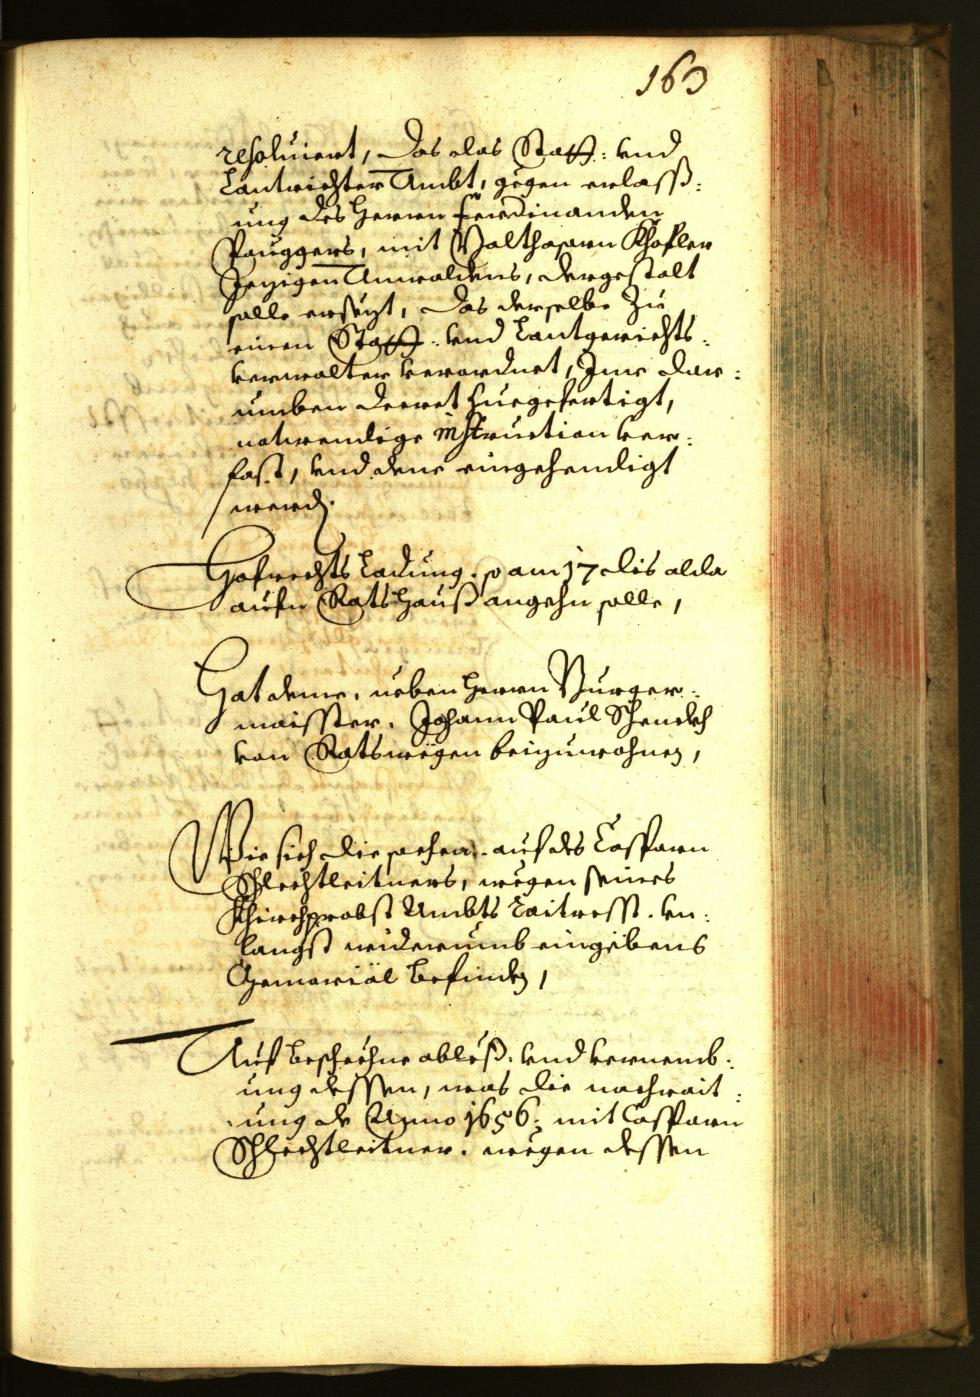 163
resoluiert, das das Statt: vnd
Lantrichter Ambt, gegen erlass¬
ung des Herrn Ferdinanden
Pauggers, mit Balthasarn Khofler
Jezigen Anwaldens, dergestalt
solle ersezt, das derselbe zu
einen Statt: vnd Lantgerichts¬
verwalter verordnet, Ime dar¬
umben decret fuergefertigt,
notwendige instruction ver¬
fast, vnd deme eingehendigt
werden.
Hofrechts Ladung, so am 17 dis alda
aufn Rats Hauß angehn solle,
Hat deme, neben Herrn Burger¬
maister, Johann Paul Schenckh
von Ratswegen beizuwohnen,
Wie sich die sachen, auf des Casparn
Schlechtleitners, wegen seines
Khirchprobst Ambts Raitresst, vn¬
langst widerumb eingebens
Memorial befinden,
Auf beschechne ableß, vnd vernemb¬
ung dessen, was die nachrait¬
ung de Anno 1656: mit Casparn
Schlechtleitner, wegen dessen